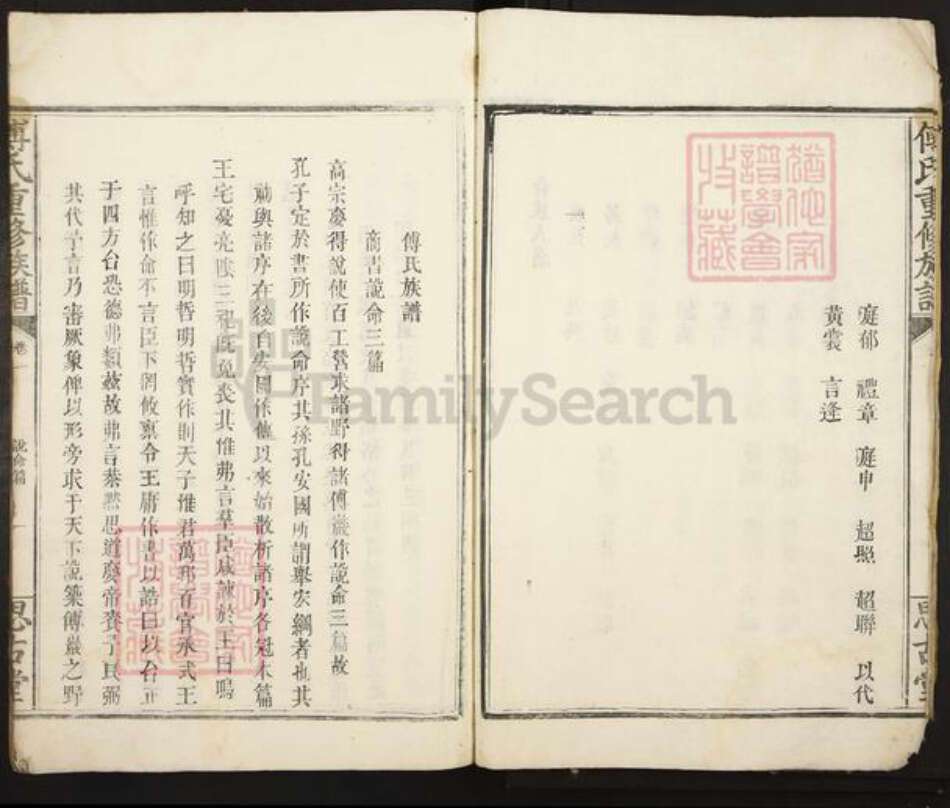 傅氏重修族譜
思古堂
庭郁 禮章 庭申 超照 超聯 以代
黃裳 言逢
猶他家譜學會收藏
傅氏族譜
商書說命三篇
高宗夢得說使百工營求諸野得諸傅巖作說命三篇故
孔子定於書所作說命序其孫孔安國所謂舉宏綱者也其
前與諸序在後自安國作傳以來始散析諸序各冠本篇
王宅憂亮陰三祀既免喪其惟弗言羣臣咸諫於王曰嗚
呼知之曰明哲明哲實作則天子惟君萬邦百官承式王
言惟作命不言臣下罔攸禀令王庸作書以誥曰以台正
于四方台恐德弗類茲故弗言恭默思道夢帝賚予良弼
其代予言乃審厥象俾以形旁求于天下說築傅巖之野
傅氏重修族譜
卷一
說命篇
一
思古堂
猶他家譜學會收藏
FamilySearch